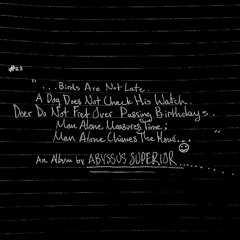 #23
"...Birds Are Not Late.
A Dog Does Not Check His Watch.
Deer Do Not Fret Over Passing Birthdays.
Man Alone Measures Time;
Man Alone Chimes The Hour...
An Album by ABYSSUS SUPERIOR............